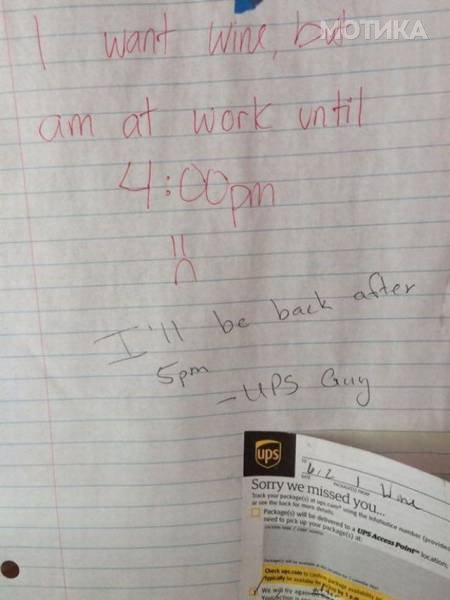 I want wine, but
МОТИКА
am at work until
4:00pm
I'll be back after
5pm
- UPS Guy
ups
6/2 1 Wine
Sorry we missed you...
Track your package(s) at ups.com using the InfoNotice number (provided
or see the back for more details.
Package(s) will be delivered to a UPS Access Point™ location;
need to pick up your package(s) at:
Check ups.com to confirm package availability
Typically
We will try again